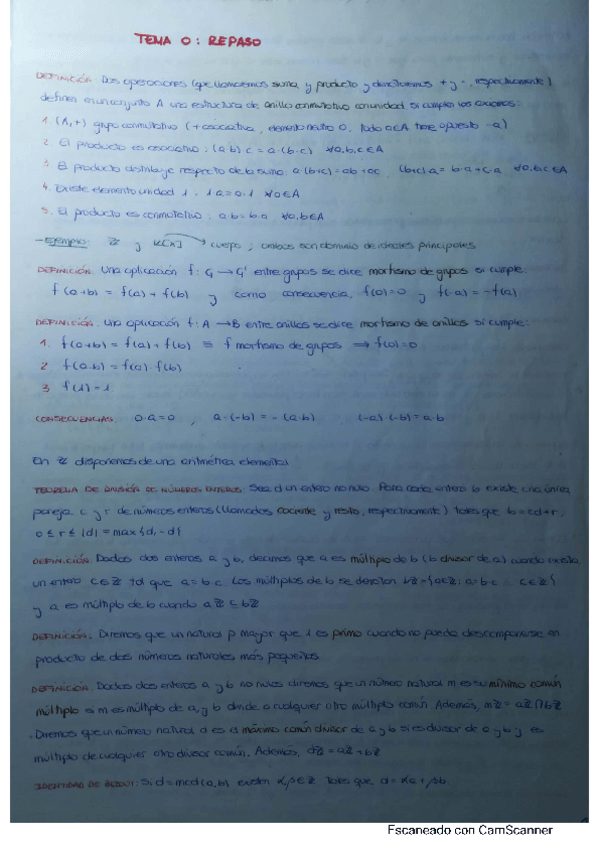 TEMA 0: REPASO
DEFINICIÓN: Dos operaciones (que llamaremos suma y producto y denotaremos + y ·, respectivamente)
definen en un conjunto A una estructura de anillo conmutativo con unidad si cumplen los axiomas:
1. (A,+) grupo conmutativo (+ asociativa, elemento neutro 0, todo a∈A tiene opuesto -a)
2. El producto es asociativo: (a·b)·c = a·(b·c) ∀a,b,c∈A
3. El producto distribuye respecto de la suma: a·(b+c) = ab+ac, (b+c)·a = b·a+c·a ∀a,b,c∈A
4. Existe elemento unidad 1 : 1·a = a·1 ∀a∈A
5. El producto es conmutativo: a·b = b·a ∀a,b∈A
- Ejemplo: ℤ y K[x] → cuerpo ; ambos son dominio de ideales principales
DEFINICIÓN: Una aplicación f: G → G' entre grupos se dice morfismo de grupos si cumple:
f(a+b) = f(a) + f(b) y como consecuencia, f(0)=0 y f(-a) = -f(a)
DEFINICIÓN: Una aplicación f: A → B entre anillos se dice morfismo de anillos si cumple:
1. f(a+b) = f(a) + f(b) ≡ f morfismo de grupos ⟹ f(0)=0
2. f(a·b) = f(a)·f(b)
3. f(1) = 1
CONSECUENCIAS: 0·a = 0 , a·(-b) = -(a·b) (-a)·(-b) = a·b
En ℤ disponemos de una aritmética elemental
TEOREMA DE DIVISIÓN DE NÚMEROS ENTEROS: Sea d un entero no nulo. Para cada entero b existe una única
pareja c y r de números enteros (llamados cociente y resto, respectivamente) tales que b = cd+r,
0 ≤ r ≤ |d| = max{d,-d}
DEFINICIÓN: Dados dos enteros a y b, decimos que a es múltiplo de b (b divisor de a) cuando exista
un entero c∈ℤ tal que a = b·c. Los múltiplos de b se denotan bℤ = {a∈ℤ: a = b·c c∈ℤ}
y a es múltiplo de b cuando aℤ ⊆ bℤ
DEFINICIÓN: Diremos que un natural p mayor que 1 es primo cuando no pueda descomponerse en
producto de dos números naturales más pequeños
DEFINICIÓN: Dados dos enteros a y b no nulos diremos que un número natural m es su mínimo común
múltiplo si m es múltiplo de a y b y divide a cualquier otro múltiplo común. Además, mℤ = aℤ ∩ bℤ
. Diremos que un número natural d es el máximo común divisor de a y b si es divisor de a y b y es
múltiplo de cualquier otro divisor común. Además, dℤ = aℤ + bℤ
IDENTIDAD DE BEZOUT: Si d = mcd(a,b) existen α,β∈ℤ tales que d = αa + βb.
Escaneado con CamScanner